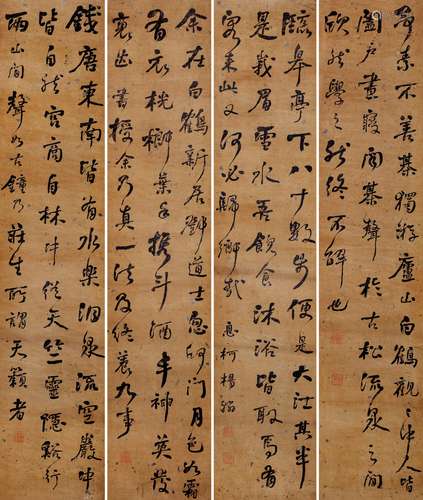 予素不善棊獨遊廬山白鶴觀〻中人皆
闔户晝寢聞棊聲於古松流泉之間
欣然學之然終不解也
臨皋亭下八十數步便是大江其半
是峩眉雪水吾飲食沐浴皆取焉有
來此又何必歸鄉哉 楊賓
余在白鶴新居鄧道士忽叩門月色如霜
有衣桄榔葉手携斗酒丰神英發
書授余乃真一法及養九事
錢唐東南皆有水樂洞泉流空巖中
皆自然宫商自林中從天竺靈隱谿行
兩山間聲如古鐘乃莊生所謂天籟者